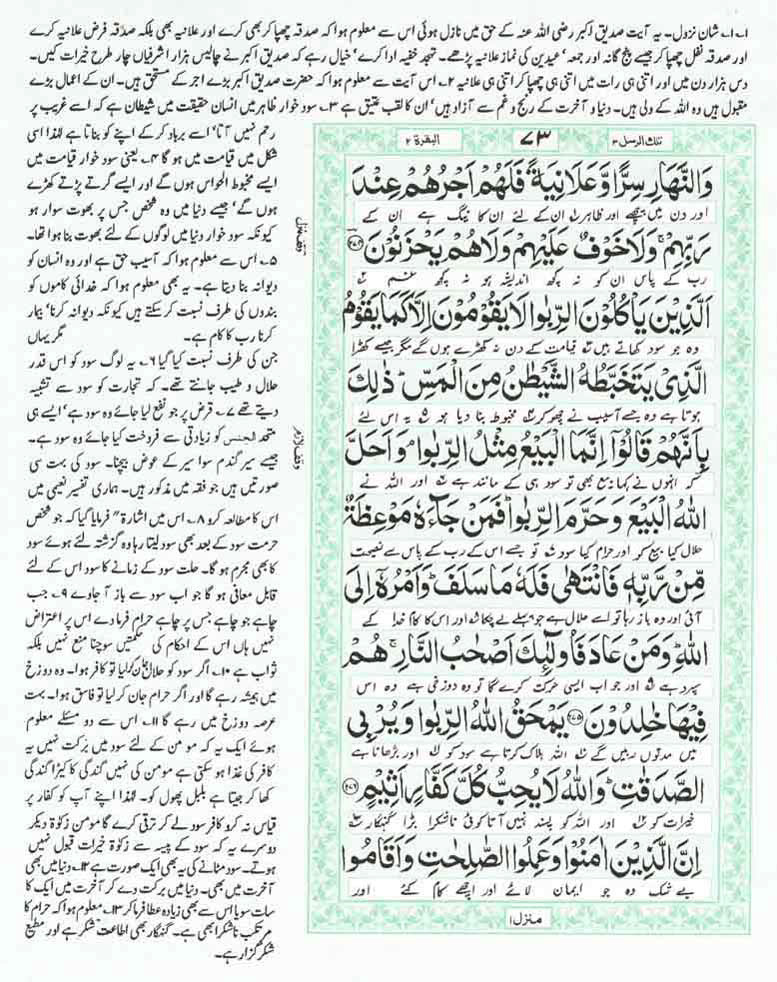 ۱۔۱۔ شان نزول۔ یہ آیت صدیق اکبر رضی اللہ عنہ کے حق میں نازل ہوئی اس سے معلوم ہوا کہ صدقہ چھپا کر بھی کرے اور علانیہ بھی بلکہ صدقہ فرض علانیہ کرے
اور صدقہ نفل چھپا کر جیسے پنج گانہ اور جمعہ' عیدین کی نماز علانیہ پڑھے۔ تہجد خفیہ ادا کرے' خیال رہے کہ صدیق اکبر نے چالیس ہزار اشرفیاں چار طرح خیرات کیں۔
دس ہزار دن میں اور اتنی ہی رات میں اتنی ہی چھپا کر اتنی ہی علانیہ ۲۔ اس آیت سے معلوم ہوا کہ حضرت صدیق اکبر بڑے اجر کے مستحق ہیں۔ ان کے اعمال بڑے
مقبول ہیں وہ اللہ کے ولی ہیں۔ دنیا و آخرت کے رنج و غم سے آزاد ہیں' ان کا لقب عتیق ہے ۳۔ سود خوار ظاہر میں انسان حقیقت میں شیطان ہے کہ اسے غریب پر
رحم نہیں آتا' اسے برباد کر کے اپنے کو بناتا ہے لہٰذا اسی
شکل میں قیامت میں ہو گا ۴۔ یعنی سود خوار قیامت میں
ایسے مخبوط الحواس ہوں گے اور ایسے گرتے پڑتے کھڑے
ہوں گے' جیسے دنیا میں وہ شخص جس پر بھوت سوار ہو
کیونکہ سود خوار دنیا میں لوگوں کے لئے بھوت بنا ہوا تھا۔
۵۔ اس سے معلوم ہوا کہ آسیب حق ہے اور وہ انسان کو
دیوانہ بنا دیتا ہے۔ یہ بھی معلوم ہوا کہ خدائی کاموں کو
بندوں کی طرف نسبت کر سکتے ہیں کیونکہ دیوانہ کرنا' بیمار
کرنا رب کا کام ہے۔ مگر یہاں
جن کی طرف نسبت کیا گیا ۶۔ یہ لوگ سود کو اس قدر
حلال و طیب جانتے تھے۔ کہ تجارت کو سود سے تشبیہ
دیتے تھے ۷۔ قرض پر جو نفع لیا جائے وہ سود ہے' ایسے ہی
متحد الجنس کو زیادتی سے فروخت کیا جائے وہ سود ہے۔
جیسے سیر گندم سوا سیر کے عوض بیچنا۔ سود کی بہت سی
صورتیں ہیں جو فقہ میں مذکور ہیں۔ ہماری تفسیر نعیمی میں
اس کا مطالعہ کرو ۸۔ اس میں اشارۃ" فرمایا گیا کہ جو شخص
حرمت سود کے بعد بھی سود لیتا رہا وہ گزشتہ لئے ہوئے سود
کا بھی مجرم ہو گا۔ حلت سود کے زمانے کا سود اس کے لئے
قابل معافی ہو گا جو اب سود سے باز آ جاوے ۹۔ رب
چاہے جو چاہے جس پر چاہے حرام فرما دے اس پر اعتراض
نہیں ہاں اس کے احکام کی حکمتیں سوچنا منع نہیں بلکہ
ثواب ہے ۱۰۔ اگر سود کو حلال جان کر لیا تو کافر ہوا۔ وہ دوزخ
میں ہمیشہ رہے گا اور اگر حرام جان کر لیا تو فاسق ہوا۔ بہت
عرصہ دوزخ میں رہے گا ۱۱۔ اس سے دو مسئلے معلوم
ہوئے ایک یہ کہ مومن کے لئے سود میں برکت نہیں یہ
کافر کی غذا ہو سکتی ہے مومن کی نہیں گندگی کا کیڑا گندگی
کھا کر جیتا ہے بلبل پھول کو۔ لہٰذا اپنے آپ کو کفار پر
قیاس نہ کرو کافر سود لے کر ترقی کرے گا مومن زکوٰۃ دیکر
دوسرے یہ کہ سود کے پیسہ سے زکوٰۃ خیرات قبول نہیں
ہوتے۔ سود مٹانے کی یہ بھی ایک صورت ہے ۱۲۔ دنیا میں بھی
آخرت میں بھی۔ دنیا میں برکت دے کر آخرت میں ایک کا
سات سو یا اس سے بھی زیادہ عطا فرما کر ۱۳۔ معلوم ہوا کہ حرام کا
مرتکب ناشکرا بھی ہے۔ گنہگار بھی اطاعت شکر ہے اور مطیع
شکر گزار ہے۔
تلك الرسل ۳ ۷۳ البقرة ۲
وَالنَّهَارِ سِرًّا وَّعَلَانِيَةً فَلَهُمْ اَجْرُهُمْ عِنْدَ
اور دن میں چھپے اور ظاہر ان کے لئے ان کا نیگ ہے ان کے
رَبِّهِمْ ۚ وَلَا خَوْفٌ عَلَيْهِمْ وَلَا هُمْ يَحْزَنُوْنَ ﴿۲۷۴﴾
رب کے پاس ان کو نہ کچھ اندیشہ ہو نہ کچھ غم
اَلَّذِيْنَ يَاْكُلُوْنَ الرِّبٰوا لَا يَقُوْمُوْنَ اِلَّا كَمَا يَقُوْمُ
وہ جو سود کھاتے ہیں قیامت کے دن نہ کھڑے ہوں گے مگر جیسے کھڑا
الَّذِيْ يَتَخَبَّطُهُ الشَّيْطٰنُ مِنَ الْمَسِّ ؕ ذٰلِكَ
ہوتا ہے وہ جسے آسیب نے چھو کر مخبوط بنا دیا ہو یہ اس لئے
بِاَنَّهُمْ قَالُوْۤا اِنَّمَا الْبَيْعُ مِثْلُ الرِّبٰوا ۘ وَاَحَلَّ
کہ انہوں نے کہا بیع بھی تو سود ہی کے مانند ہے اور اللہ نے
اللّٰهُ الْبَيْعَ وَحَرَّمَ الرِّبٰوا ؕ فَمَنْ جَآءَهٗ مَوْعِظَةٌ
حلال کیا بیع کو اور حرام کیا سود تو جسے اس کے رب کے پاس سے نصیحت
مِّنْ رَّبِّهٖ فَانْتَهٰى فَلَهٗ مَا سَلَفَ ؕ وَاَمْرُهٗۤ اِلَى
آئی اور وہ باز رہا تو اسے حلال ہے جو پہلے لے چکا اور اس کا کام خدا کے
اللّٰهِ ؕ وَمَنْ عَادَ فَاُولٰٓئِكَ اَصْحٰبُ النَّارِ ۚ هُمْ
سپرد ہے اور جو اب ایسی حرکت کرے گا تو وہ دوزخی ہے وہ اس
فِيْهَا خٰلِدُوْنَ ﴿۲۷۵﴾ يَمْحَقُ اللّٰهُ الرِّبٰوا وَيُرْبِي
میں مدتوں رہیں گے اللہ ہلاک کرتا ہے سود کو اور بڑھاتا ہے
الصَّدَقٰتِ ؕ وَاللّٰهُ لَا يُحِبُّ كُلَّ كَفَّارٍ اَثِيْمٍ ﴿۲۷۶﴾
خیرات کو اور اللہ کو پسند نہیں آتا کوئی ناشکرا بڑا گنہگار
اِنَّ الَّذِيْنَ اٰمَنُوْا وَعَمِلُوا الصّٰلِحٰتِ وَاَقَامُوا
بے شک وہ جو ایمان لائے اور اچھے کام کئے اور
منزل ۱
وقف لازم